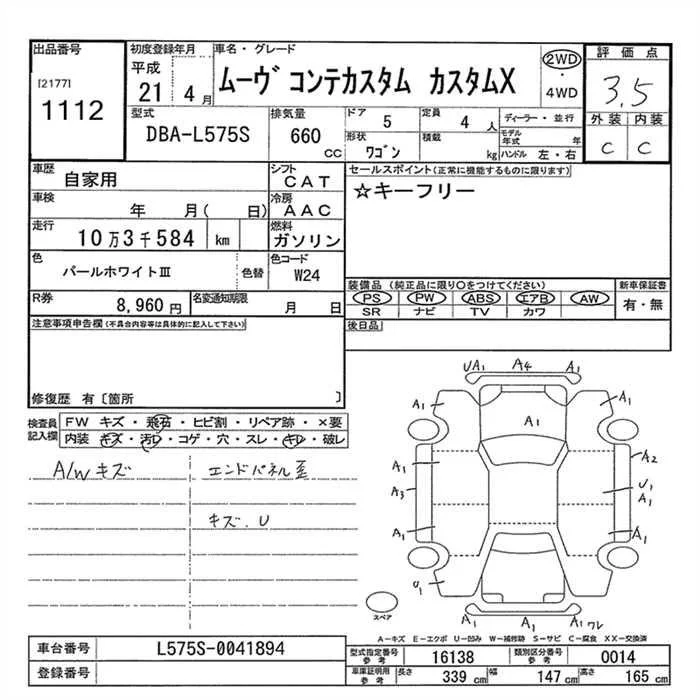 出品番号
[2177]
1112
初度登録年月
平成
21 4 月
車名・グレード
ムーヴ コンテカスタム カスタムX
2WD
・
4WD
評価点
3.5
外装 内装
C C
型式
DBA-L575S
排気量
660
CC
ドア
5
定員
4 人
形状
ワゴン
積載
kg
ディーラー・並行
モデル年式 年
ハンドル 左・右
車歴
自家用
シフト
CAT
車検
年 月( 日)
冷房
AAC
走行
10万3千584 km
燃料
ガソリン
色
パールホワイトⅢ
色替
色コード
W24
R券
8,960円
名変通知期限
月 日
セールスポイント(正常に機能するものに限ります)
☆キーフリー
装備品(純正品に限り〇をつけてください)
PS PW ABS エアB AW
SR ナビ TV カワ
新車保証書
有・無
後日品
注意事項申告欄(不具合内容等は具体的に記入して下さい)
修復歴 有〔箇所 〕
検査員
記入欄
FW キズ・飛石・ヒビ割・リペア跡・×要
内装 キズ・汚レ・コゲ・穴・スレ・キレ・破レ
A/W キズ
エンドパネル歪
キズ.U
UA1 A4 A1
A1 A1
A1
A1 A2
A3 U1
A1
A1 A1
U1
A1 A1 A1 ワレ
スペア
A-キズ E-エクボ U-凹み W-補修跡 S-サビ C-腐食 XX-交換済
車台番号
L575S-0041894
登録番号
型式指定番号
参考
16138
類別区分番号
参考
0014
車庫証明用
参考
長さ
339 cm
幅
147 cm
高さ
165 cm